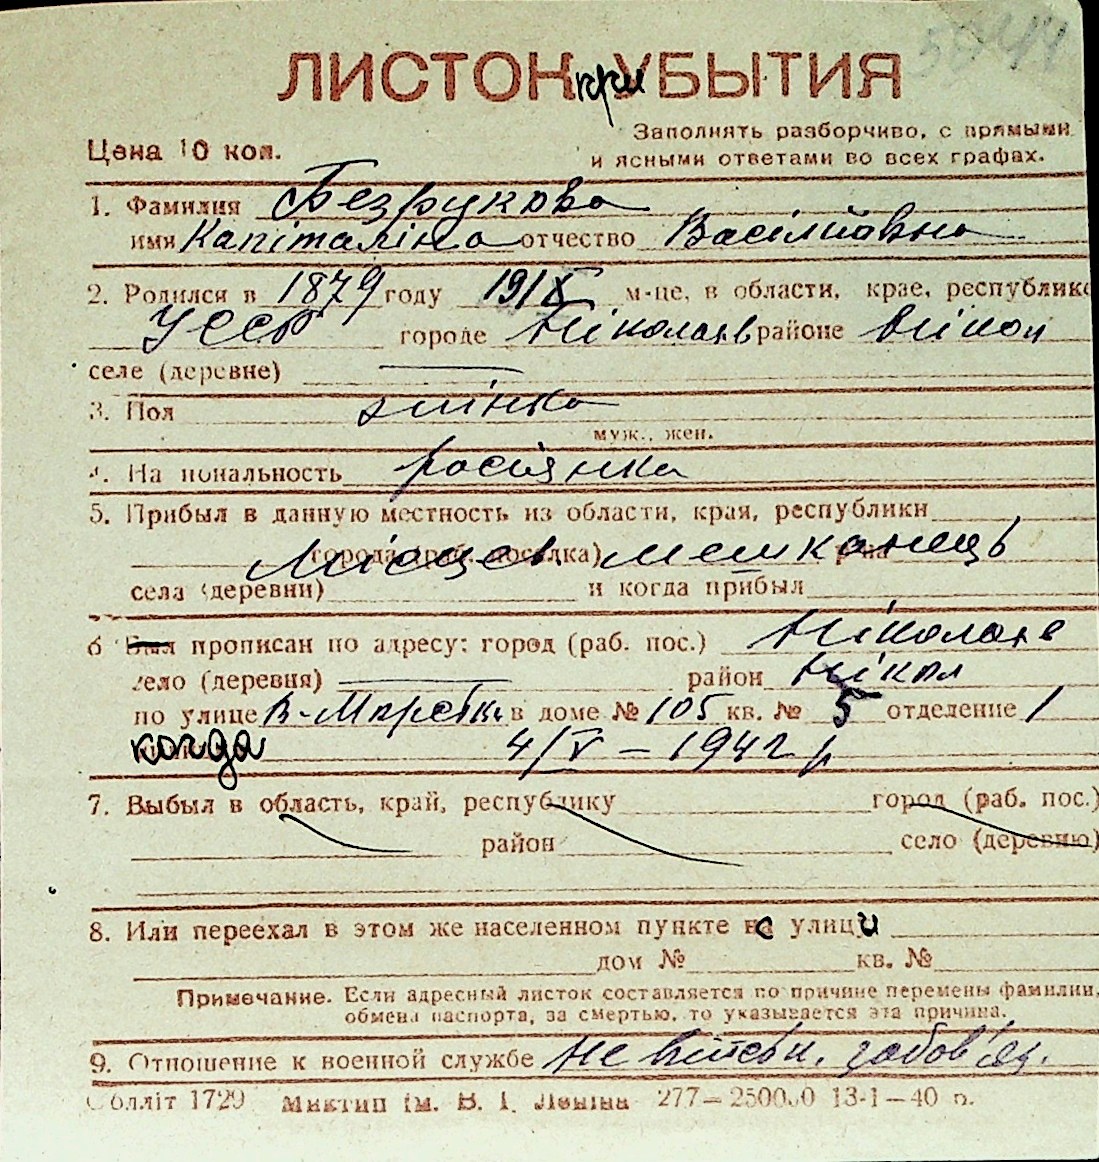 ЛИСТОК приУБЫТИЯ
Цена 10 коп.
Заполнять разборчиво, с прямыми
и ясными ответами во всех графах.
1. Фамилия Безрукова
имя Капіталіна отчество Васілійовна
2. Родился в 1879 году 19/X м-це, в области, крае, республике
УССР городе Ніколаєв районе Нікол
селе (деревне)
3. Пол жінка
муж., жен.
4. Национальность росіянка
5. Прибыл в данную местность из области, края, республики
города (раб. поселка) Місцев. мешканець
села (деревни) и когда прибыл
6 Был прописан по адресу: город (раб. пос.) Ніколаєв
село (деревня) район Нікол
по улице В-Морська в доме № 105 кв. № 5 отделение 1
когда 4/V – 1942 р
7. Выбыл в область, край, республику город (раб. пос.)
район село (деревню)
8. Или переехал в этом же населенном пункте с улици
дом № кв. №
Примечание. Если адресный листок составляется по причине перемены фамилии,
обмена паспорта, за смертью, то указывается эта причина.
9. Отношение к военной службе Не війсьи. забов'яз.
Облліт 1729 Миктип ім. В. І. Леніна 277–250000 13-1–40 р.